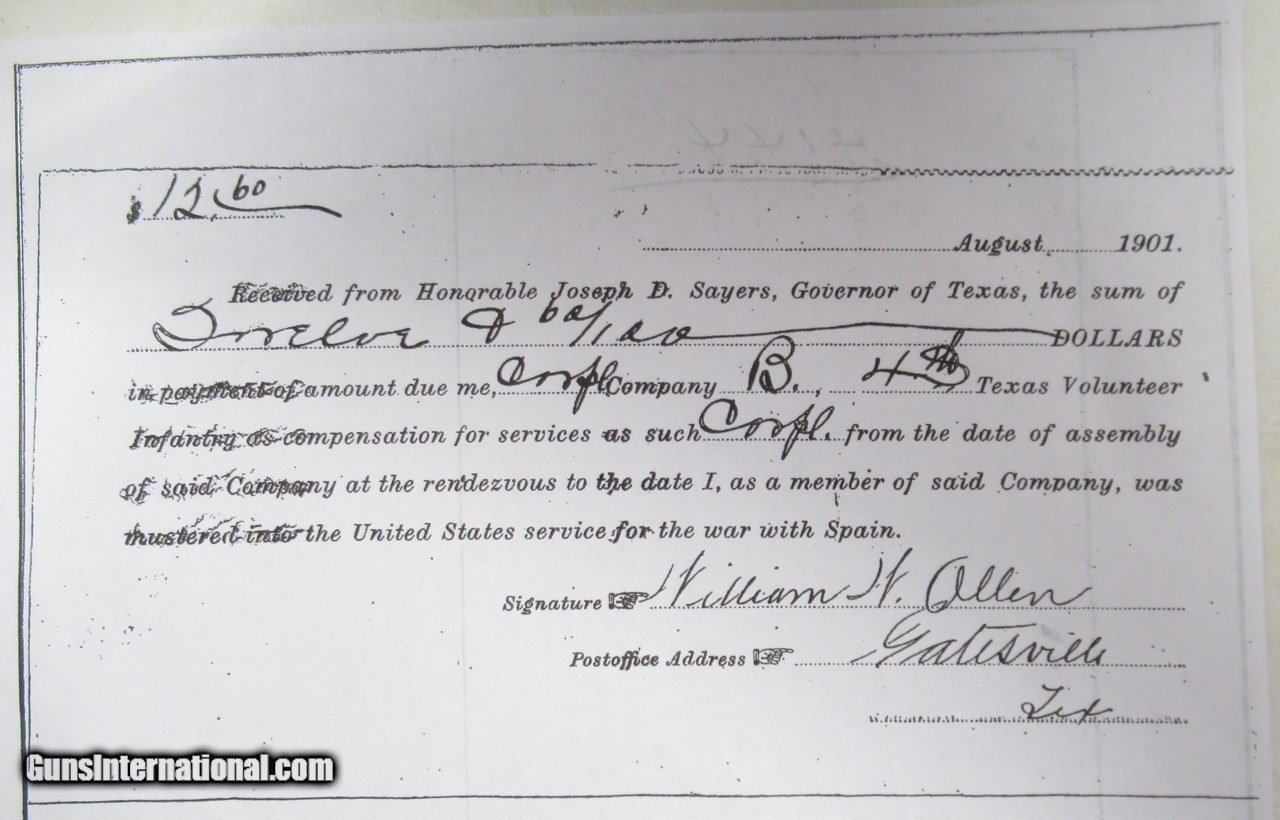 $12.60
August 1901.
Received from Honorable Joseph D. Sayers, Governor of Texas, the sum of
Twelve & 60/100 DOLLARS
in payment of amount due me, Corpl Company B., 4th Texas Volunteer
Infantry as compensation for services as such Corpl. from the date of assembly
of said Company at the rendezvous to the date I, as a member of said Company, was
mustered into the United States service for the war with Spain.
Signature William W. Allen
Postoffice Address Gatesville
Tex
GunsInternational.com